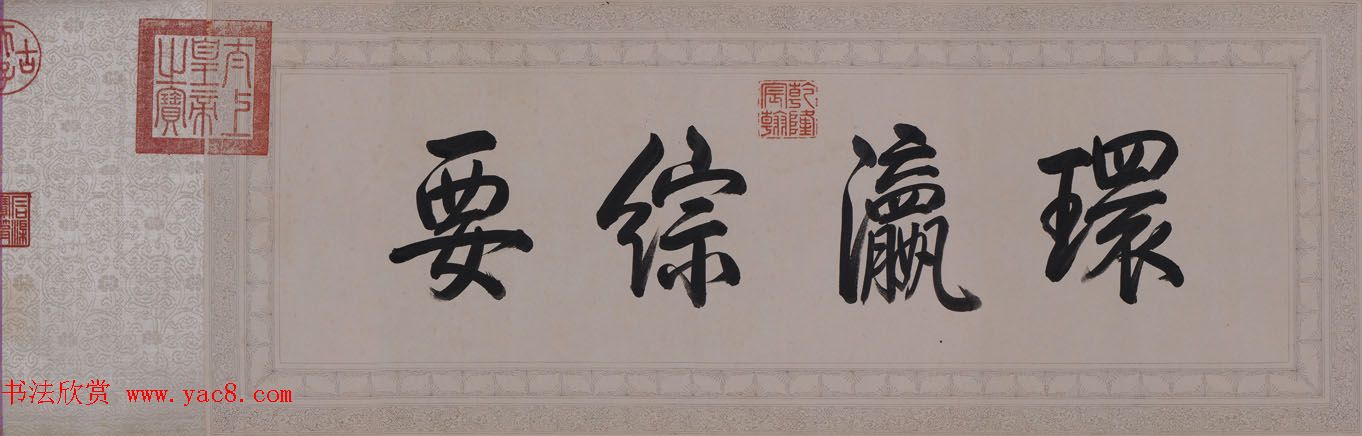 環瀛綜要
乾隆宸翰
太上皇帝之寶
书法欣赏 www.yac8.com